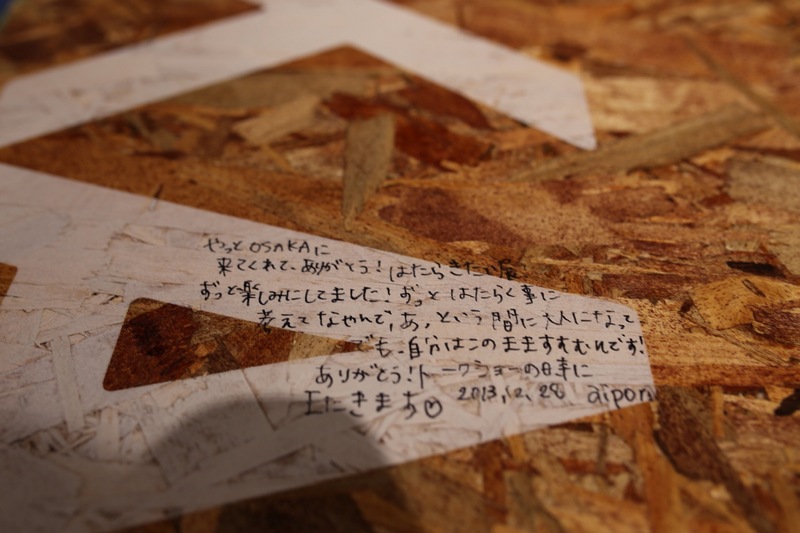 やっと OSAKAに
来てくれて、ありがとう!はたらきたい展
ずっと楽しみにしてました!ずっと はたらく事に
考えて なやんで、あっという間に大人になって
でも、自分はこのまますすむんです!
ありがとう!トークショーの日事に
またきます 2013,12,28 aipon